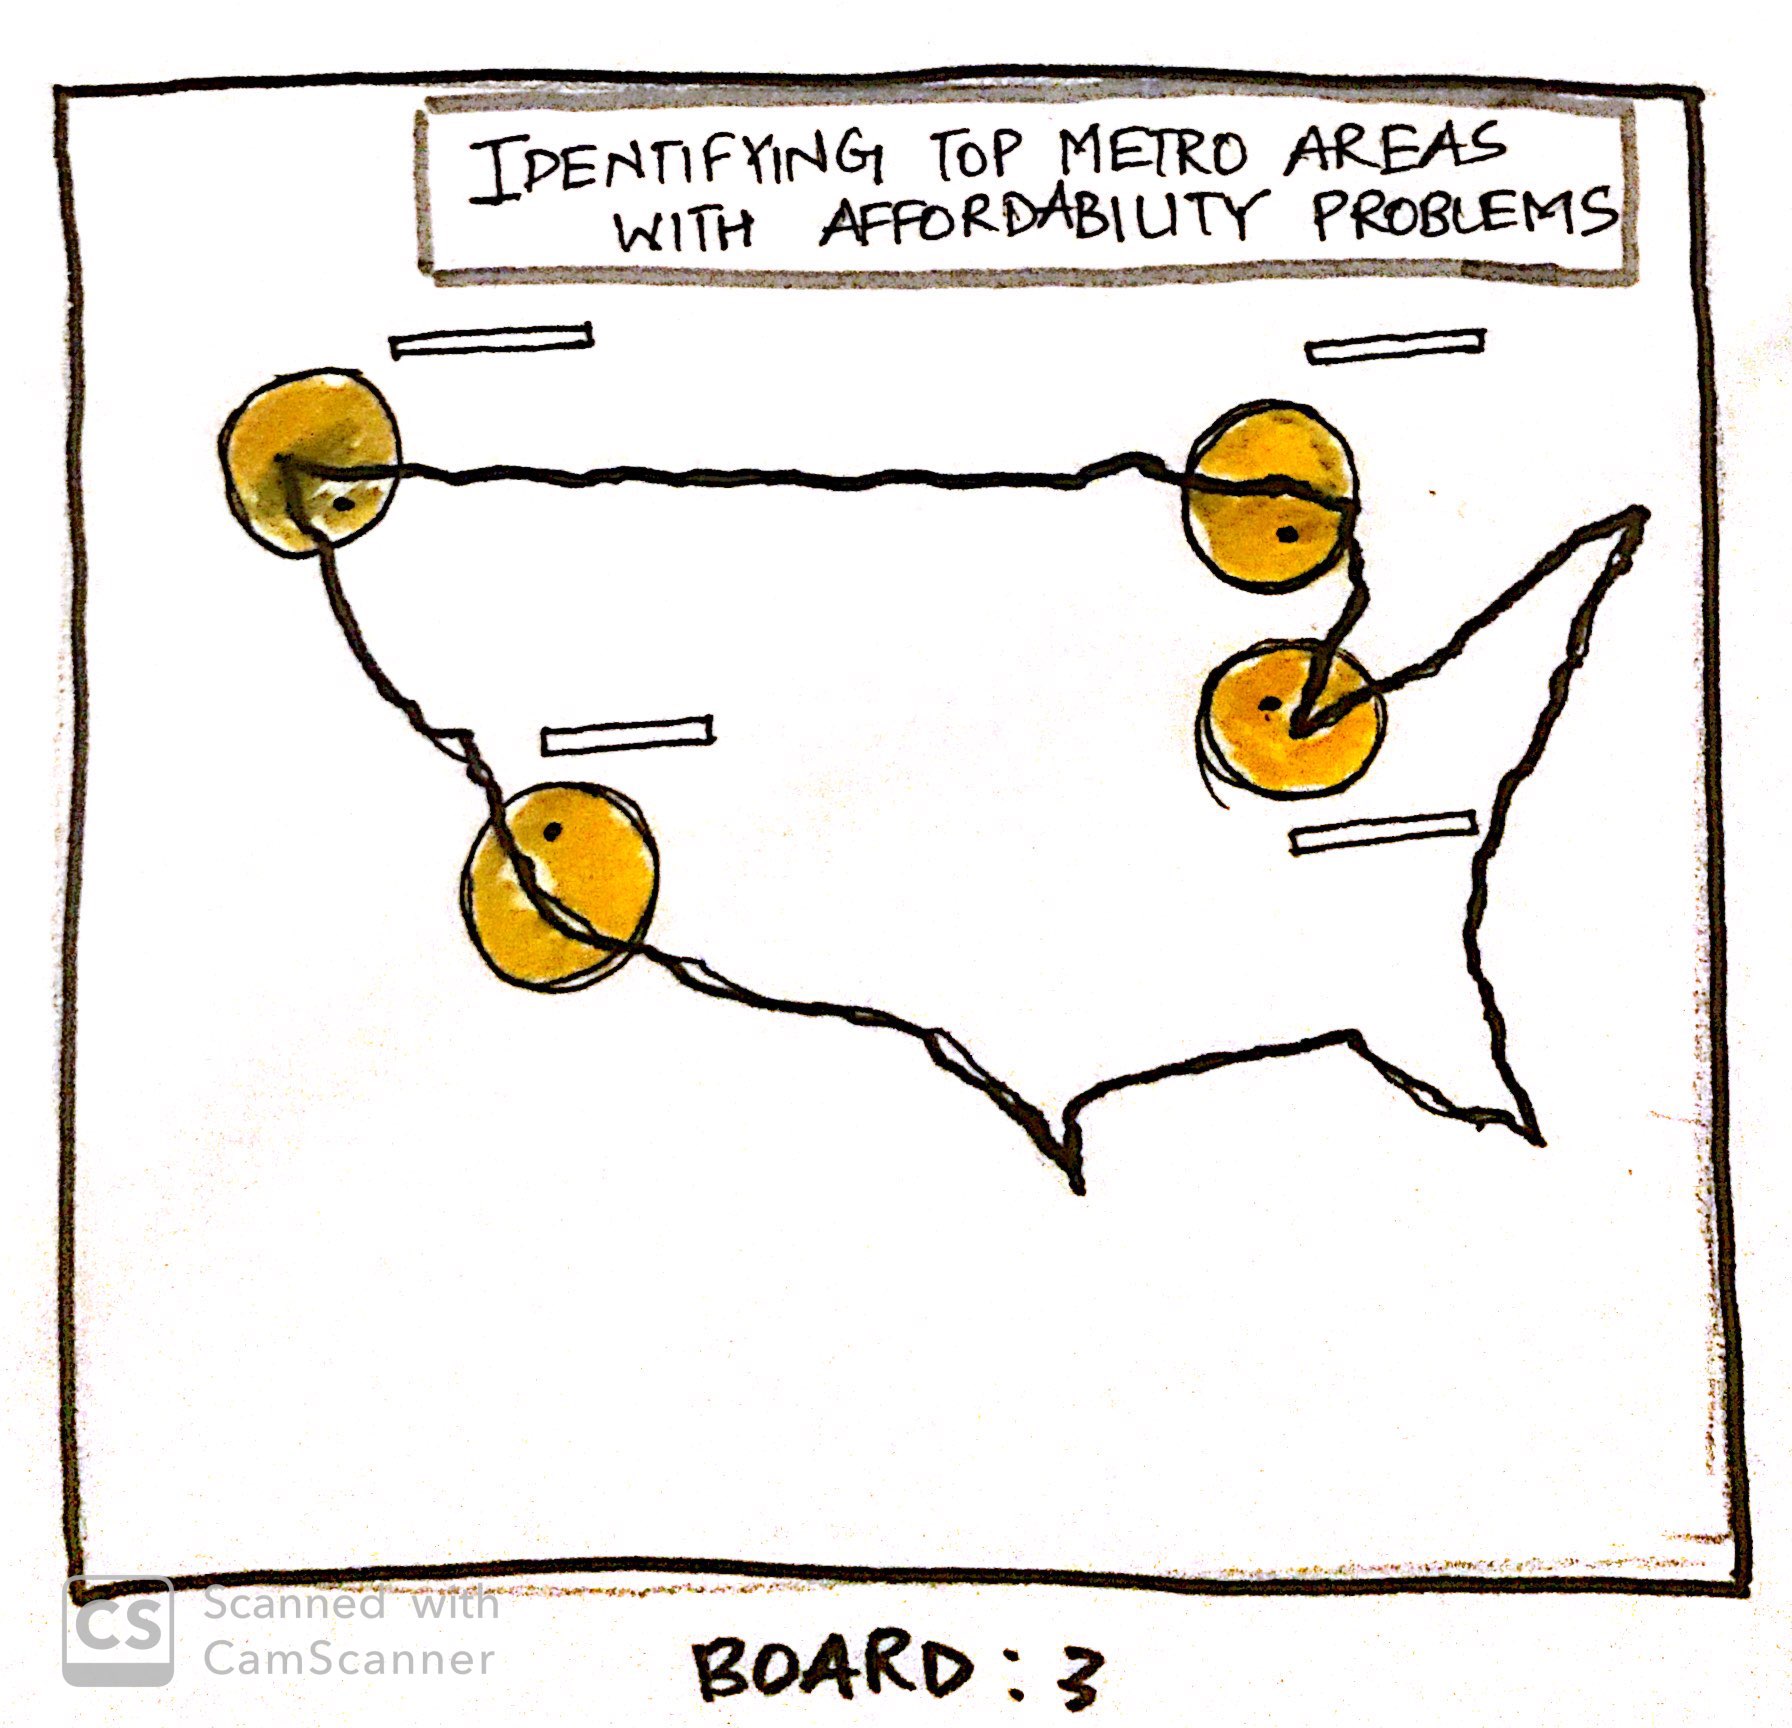 IDENTIFYING TOP METRO AREAS
WITH AFFORDABILITY PROBLEMS
CS
Scanned with
CamScanner
BOARD : 3